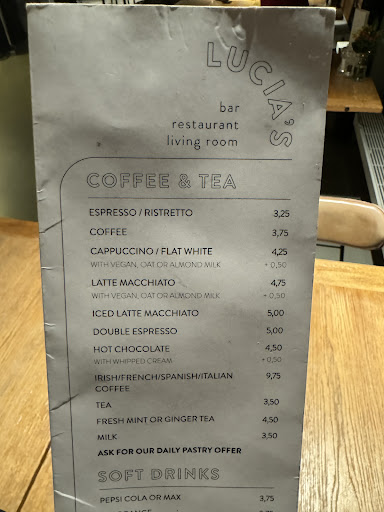 LUCIA'S
bar
restaurant
living room
COFFEE & TEA
ESPRESSO / RISTRETTO 3,25
COFFEE 3,75
CAPPUCCINO / FLAT WHITE 4,25
WITH VEGAN, OAT OR ALMOND MILK + 0,50
LATTE MACCHIATO 4,75
WITH VEGAN, OAT OR ALMOND MILK + 0,50
ICED LATTE MACCHIATO 5,00
DOUBLE ESPRESSO 5,00
HOT CHOCOLATE 4,50
WITH WHIPPED CREAM + 0,50
IRISH/FRENCH/SPANISH/ITALIAN 9,75
COFFEE
TEA 3,50
FRESH MINT OR GINGER TEA 4,50
MILK 3,50
ASK FOR OUR DAILY PASTRY OFFER
SOFT DRINKS
PEPSI COLA OR MAX 3,75